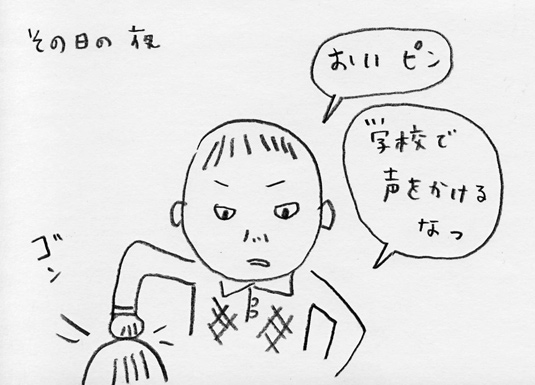 その日の夜
おいい ピン
学校で
声をかける
なっ
ゴン